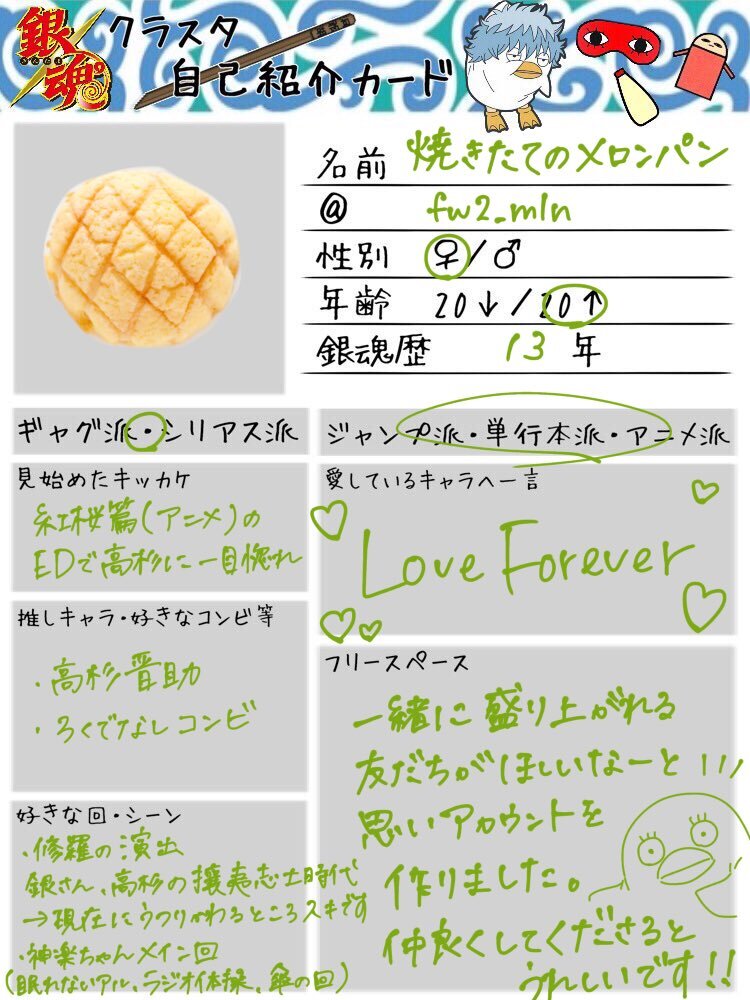 銀魂
クラスタ
自己紹介カード
名前 焼きたてのメロンパン
@ fw2_mln
性別 ♀/♂
年齢 20↓/20↑
銀魂歴 13年
ギャグ派・シリアス派
ジャンプ派・単行本派・アニメ派
見始めたキッカケ
紅桜篇(アニメ)の
EDで高杉に一目惚れ
愛しているキャラへ一言
Love Forever
推しキャラ・好きなコンビ等
・高杉晋助
・ろくでなしコンビ
フリースペース
一緒に盛り上がれる
友だちがほしいなーと
思いアカウントを
作りました。
仲良くしてくださると
うれしいです!!
好きな回・シーン
・修羅の演出
銀さん、高杉の攘夷志士時代
→現在にうつりかわるところスキです
・神楽ちゃんメイン回
(眠れないアル、ラジオ体操、傘の回)